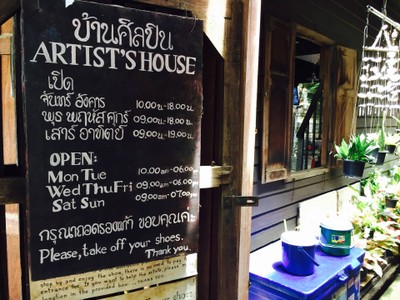 บ้านศิลปิน
ARTIST'S HOUSE
เปิด
จันทร์ อังคาร 10.00น-18.00น.
พุธ พฤหัส ศุกร์ 09.00น-18.00น.
เสาร์ อาทิตย์ 09.00น-19.00น.
OPEN:
Mon Tue 10.00am-06.00pm
Wed Thu Fri 09.00am-06.00pm
Sat Sun 09.00am-07.00pm
กรุณาถอดรองเท้า ขอบคุณค่ะ
Please, take off your shoes.
Thank you.
stop by and enjoy the show, there is no need to pay
entrance fee. If you want to help the estate, please